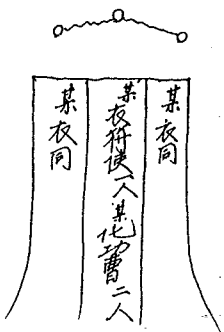 某衣同
某衣符使一人某化功曹二人
某衣同